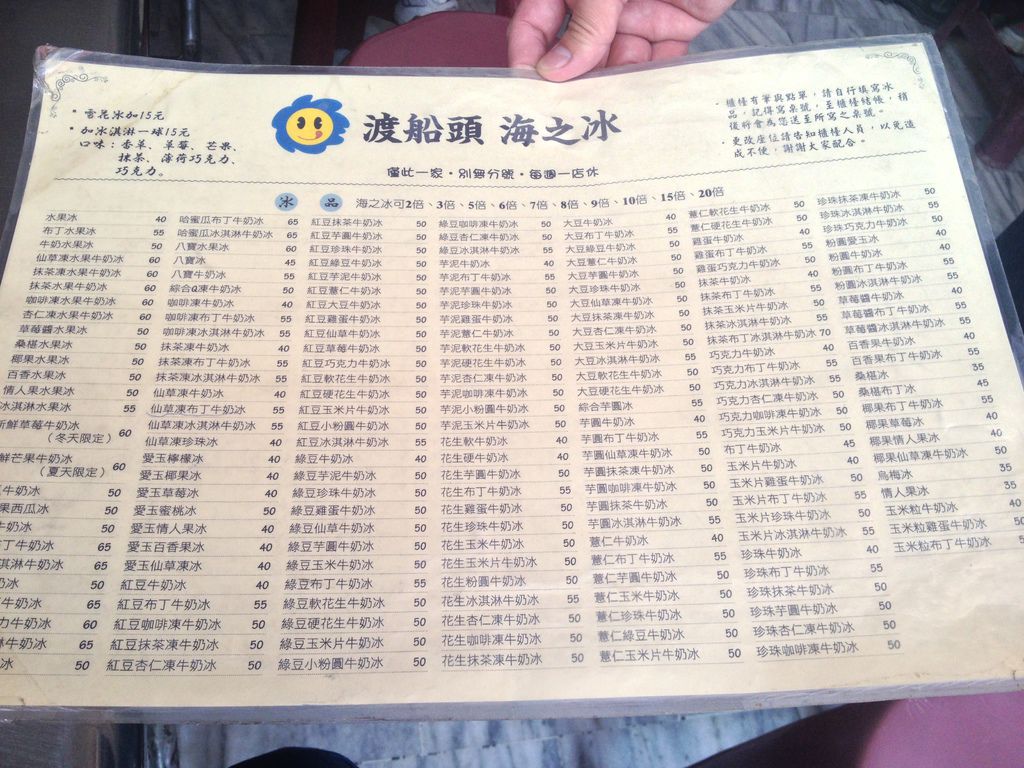 * 雪花冰加15元
* 加冰淇淋一球15元
口味：香芋、草莓、芒果、
抹茶、薄荷巧克力、
巧克力。
渡船頭 海之冰
僅此一家·別無分號·每週一店休
· 櫃檯有筆與點單，請自行填寫冰
品，記得寫桌號，至櫃檯結帳，稍
後將會為您送至所寫之桌號。
· 更改座位請告知櫃檯人員，以免造
成不便，謝謝大家配合。
冰 品 海之冰可2倍、3倍、5倍、6倍、7倍、8倍、9倍、10倍、15倍、20倍
水果冰 40
布丁水果冰 55
牛奶水果冰 50
仙草凍水果牛奶冰 60
抹茶凍水果牛奶冰 60
抹茶水果牛奶冰 60
咖啡凍水果牛奶冰 60
杏仁凍水果牛奶冰 60
草莓醬水果冰 50
桑椹水果冰 50
椰果水果冰 50
百香水果冰 50
情人果水果冰 50
冰淇淋水果冰 55
新鮮草莓牛奶冰
（冬天限定） 60
鮮芒果牛奶冰
（夏天限定） 60
牛奶冰 50
果西瓜冰 50
牛奶冰 50
丁牛奶冰 65
淇淋牛奶冰 65
奶冰 50
牛奶冰 65
力牛奶冰 60
牛奶冰 65
冰 50
哈蜜瓜布丁牛奶冰 65
哈蜜瓜冰淇淋牛奶冰 65
八寶水果冰 60
八寶冰 45
八寶牛奶冰 55
綜合Q凍牛奶冰 50
咖啡凍牛奶冰 40
咖啡凍布丁牛奶冰 55
咖啡凍冰淇淋牛奶冰 55
抹茶凍牛奶冰 40
抹茶凍布丁牛奶冰 55
抹茶凍冰淇淋牛奶冰 55
仙草凍牛奶冰 40
仙草凍布丁牛奶冰 55
仙草凍冰淇淋牛奶冰 55
仙草凍珍珠冰 40
愛玉檸檬冰 40
愛玉椰果冰 40
愛玉草莓冰 40
愛玉蜜桃冰 50
愛玉情人果冰 40
愛玉百香果冰 40
愛玉仙草凍冰 40
紅豆牛奶冰 40
紅豆布丁牛奶冰 55
紅豆咖啡凍牛奶冰 50
紅豆抹茶凍牛奶冰 50
紅豆杏仁凍牛奶冰 50
紅豆抹茶牛奶冰 50
紅豆芋圓牛奶冰 50
紅豆珍珠牛奶冰 50
紅豆綠豆牛奶冰 50
紅豆芋泥牛奶冰 50
紅豆薏仁牛奶冰 50
紅豆大豆牛奶冰 50
紅豆雞蛋牛奶冰 50
紅豆仙草牛奶冰 50
紅豆草莓牛奶冰 50
紅豆巧克力牛奶冰 50
紅豆軟花生牛奶冰 50
紅豆硬花生牛奶冰 50
紅豆玉米片牛奶冰 50
紅豆小粉圓牛奶冰 50
紅豆冰淇淋牛奶冰 55
綠豆牛奶冰 40
綠豆芋泥牛奶冰 50
綠豆珍珠牛奶冰 50
綠豆雞蛋牛奶冰 50
綠豆仙草牛奶冰 50
綠豆芋圓牛奶冰 50
綠豆玉米牛奶冰 50
綠豆布丁牛奶冰 55
綠豆軟花生牛奶冰 50
綠豆硬花生牛奶冰 50
綠豆玉米片牛奶冰 50
綠豆小粉圓牛奶冰 50
綠豆咖啡凍牛奶冰 50
綠豆杏仁凍牛奶冰 50
綠豆冰淇淋牛奶冰 55
芋泥牛奶冰 40
芋泥布丁牛奶冰 55
芋泥芋圓牛奶冰 50
芋泥珍珠牛奶冰 50
芋泥雞蛋牛奶冰 50
芋泥薏仁牛奶冰 50
芋泥軟花生牛奶冰 50
芋泥硬花生牛奶冰 50
芋泥杏仁凍牛奶冰 50
芋泥咖啡凍牛奶冰 50
芋泥小粉圓牛奶冰 50
芋泥玉米片牛奶冰 50
花生軟牛奶冰 40
花生硬牛奶冰 40
花生芋圓牛奶冰 50
花生布丁牛奶冰 55
花生雞蛋牛奶冰 50
花生珍珠牛奶冰 50
花生玉米牛奶冰 50
花生粉圓牛奶冰 50
花生冰淇淋牛奶冰 55
花生杏仁凍牛奶冰 50
花生咖啡凍牛奶冰 50
花生抹茶凍牛奶冰 50
大豆牛奶冰 40
大豆布丁牛奶冰 55
大豆綠豆牛奶冰 50
大豆薏仁牛奶冰 50
大豆芋圓牛奶冰 50
大豆珍珠牛奶冰 50
大豆仙草凍牛奶冰 50
大豆抹茶凍牛奶冰 50
大豆杏仁凍牛奶冰 50
大豆玉米片牛奶冰 50
大豆冰淇淋牛奶冰 55
大豆軟花生牛奶冰 50
大豆硬花生牛奶冰 50
綜合芋圓冰 55
芋圓牛奶冰 40
芋圓布丁牛奶冰 55
芋圓仙草凍牛奶冰 50
芋圓抹茶凍牛奶冰 50
芋圓咖啡凍牛奶冰 50
芋圓抹茶牛奶冰 50
芋圓冰淇淋牛奶冰 55
薏仁牛奶冰 40
薏仁布丁牛奶冰 55
薏仁芋圓牛奶冰 50
薏仁玉米牛奶冰 50
薏仁珍珠牛奶冰 50
薏仁綠豆牛奶冰 50
薏仁玉米片牛奶冰 50
薏仁軟花生牛奶冰 50
薏仁硬花生牛奶冰 50
雞蛋牛奶冰 40
雞蛋布丁牛奶冰 55
雞蛋巧克力牛奶冰 50
抹茶牛奶冰 40
抹茶布丁牛奶冰 55
抹茶玉米片牛奶冰 50
抹茶冰淇淋牛奶冰 55
抹茶布丁冰淇淋牛奶冰 70
巧克力牛奶冰 40
巧克力布丁牛奶冰 55
巧克力冰淇淋牛奶冰 55
巧克力杏仁凍牛奶冰 50
巧克力咖啡凍牛奶冰 50
巧克力玉米片牛奶冰 50
布丁牛奶冰 45
玉米片牛奶冰 40
玉米片雞蛋牛奶冰 50
玉米片布丁牛奶冰 55
玉米片珍珠牛奶冰 50
玉米片冰淇淋牛奶冰 55
珍珠牛奶冰 40
珍珠布丁牛奶冰 55
珍珠抹茶牛奶冰 50
珍珠芋圓牛奶冰 50
珍珠杏仁凍牛奶冰 50
珍珠咖啡凍牛奶冰 50
珍珠抹茶凍牛奶冰 50
珍珠冰淇淋牛奶冰 55
珍珠巧克力牛奶冰 50
粉圓愛玉冰 40
粉圓牛奶冰 40
粉圓布丁牛奶冰 55
粉圓冰淇淋牛奶冰 55
草莓醬牛奶冰 40
草莓醬布丁牛奶冰 55
草莓醬冰淇淋牛奶冰 55
百香果牛奶冰 40
百香果布丁牛奶冰 55
桑椹冰 35
桑椹布丁冰 45
椰果布丁牛奶冰 55
椰果草莓冰 40
椰果情人果冰 40
椰果仙草凍牛奶冰 50
烏梅冰 35
情人果冰 35
玉米粒牛奶冰 40
玉米粒雞蛋牛奶冰 50
玉米粒布丁牛奶冰